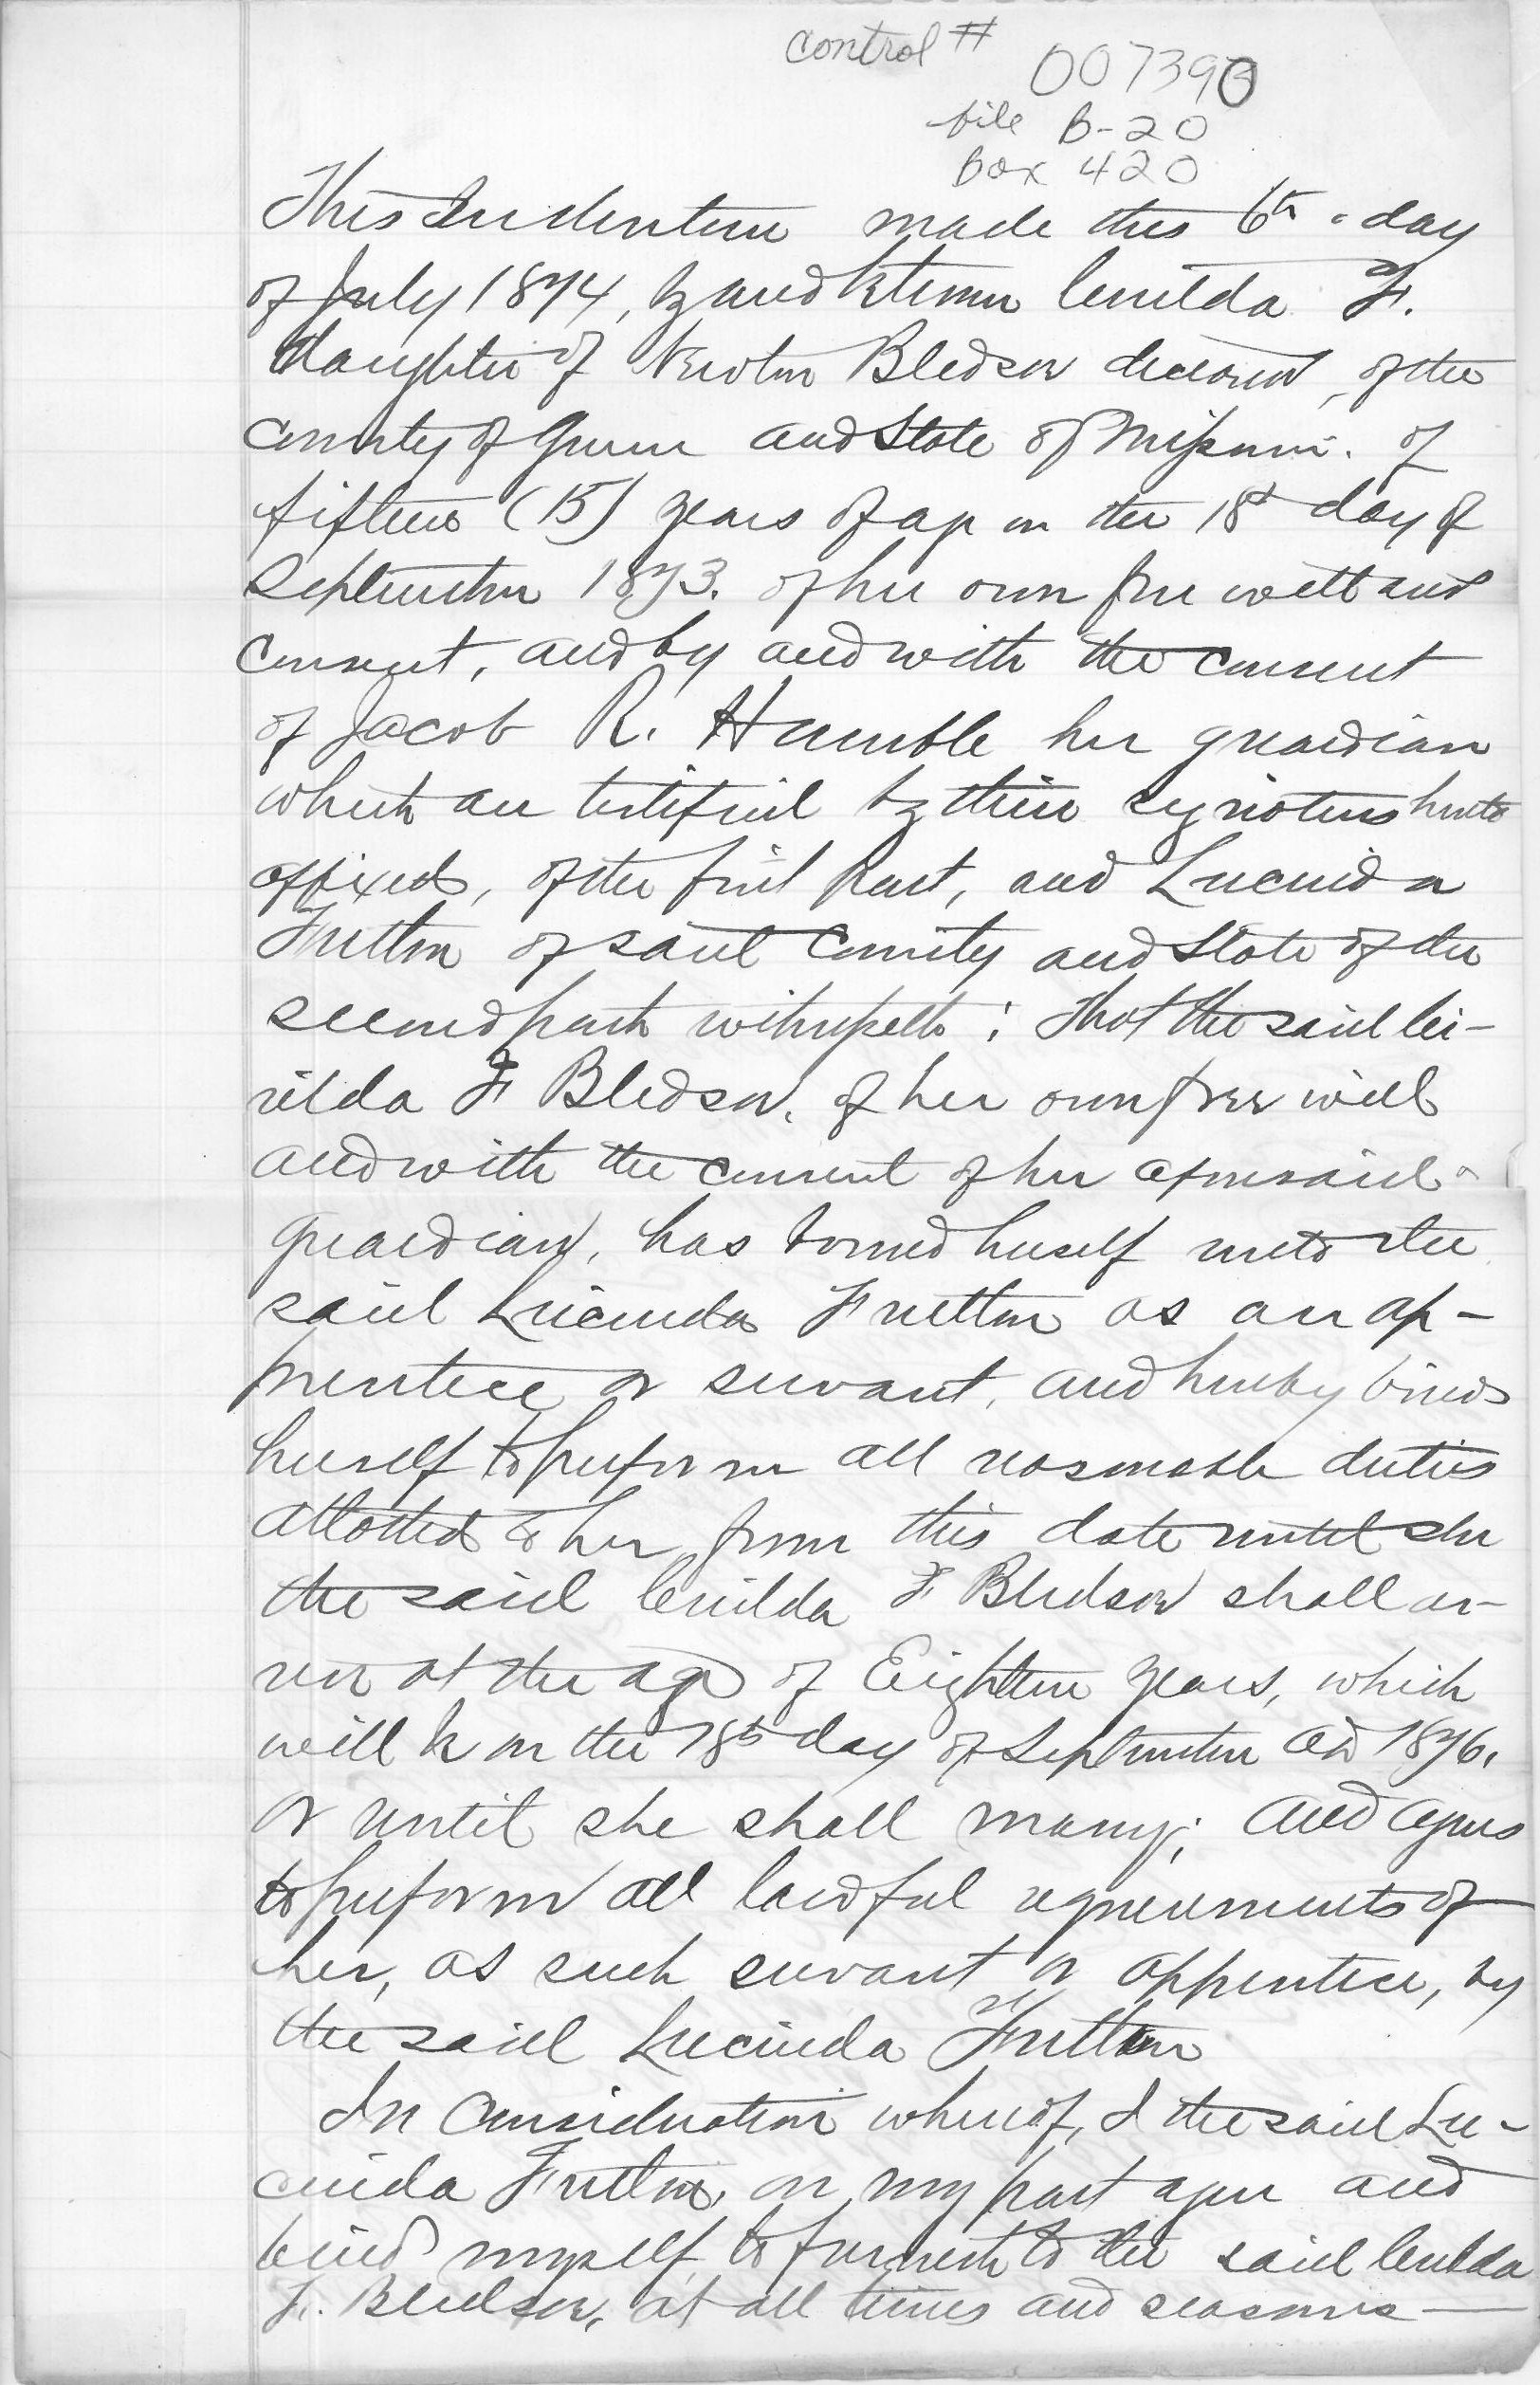 control #
007390
file B-20
Box 420
This Indenture made this 6th day
of July 1874, by and between F.
daughter of Newton Bledsoe deceased, of the
County of Greene and State of Missouri. of
fifteen (15) years of age on the 18th day of
September 1873. of her own free will and
consent, and by and with the consent
of Jacob R. Humble her guardian
which are testified by their signatures hereto
affixed, of the first part, and Lucinda
Fretton of said County and State of the
second part witnesseth: That the said
rilda F Bledsoe, of her own free will
and with the consent of her aforesaid
guardian, has bound herself unto the
said Lucinda Fretton as an ap-
prentice or servant, and hereby binds
herself to perform all reasonable duties
allotted to her from this date until she
the said F Bledsoe shall ar-
rive at the age of Eighteen years, which
will be on the 18th day of September AD 1876.
or until she shall marry; and agrees
to perform all lawful agreements of
her, as such servant or apprentice, by
the said Lucinda Fretton
In Consideration whereof, I the said Lu-
cinda Fretton, on my part agree and
bind myself, to furnish to the said
F. Bledsoe, at all times and seasons